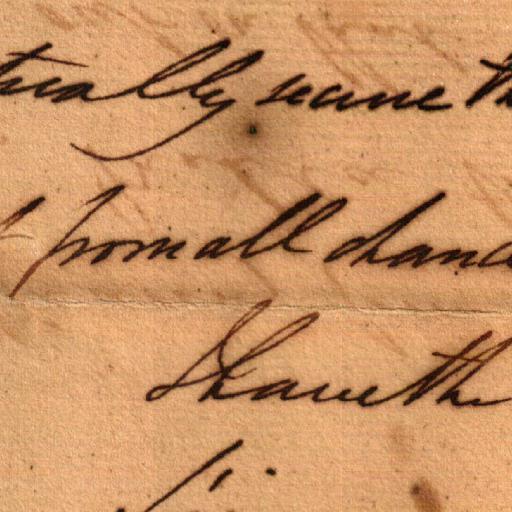 tually secure th
from all chanc
I have the
Si